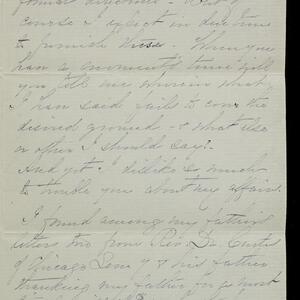 formal
course & expect in due time
to furnish these. When you
have a moment's time will
you tell me wherein what
I have said fails to cover the
desired ground - & what else
or other I should say?
And yet I dislike so much
to trouble you about my affairs.
I found among my father's
letters two from Rev. Dr. Curtis
of Chicago Sem'y & his father
thanking my father